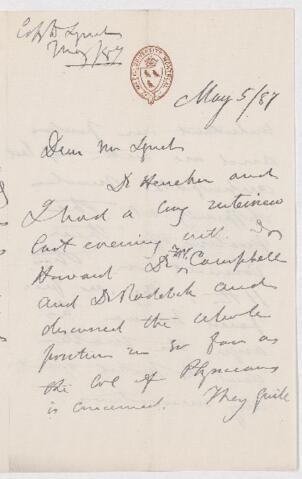 Copy D Lynch
May/87
May 5/87
Dear Mr Lynch
Dr and
I had a long interview
last evening with Drs
Howard Dr Campbell
and Dr Roddick and
discussed the whole
position in so far as
the Col of Physicians
is concerned. They quite